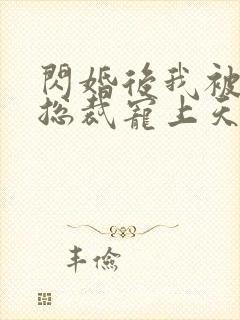 閃婚後我被
總裁寵上天
丰儉